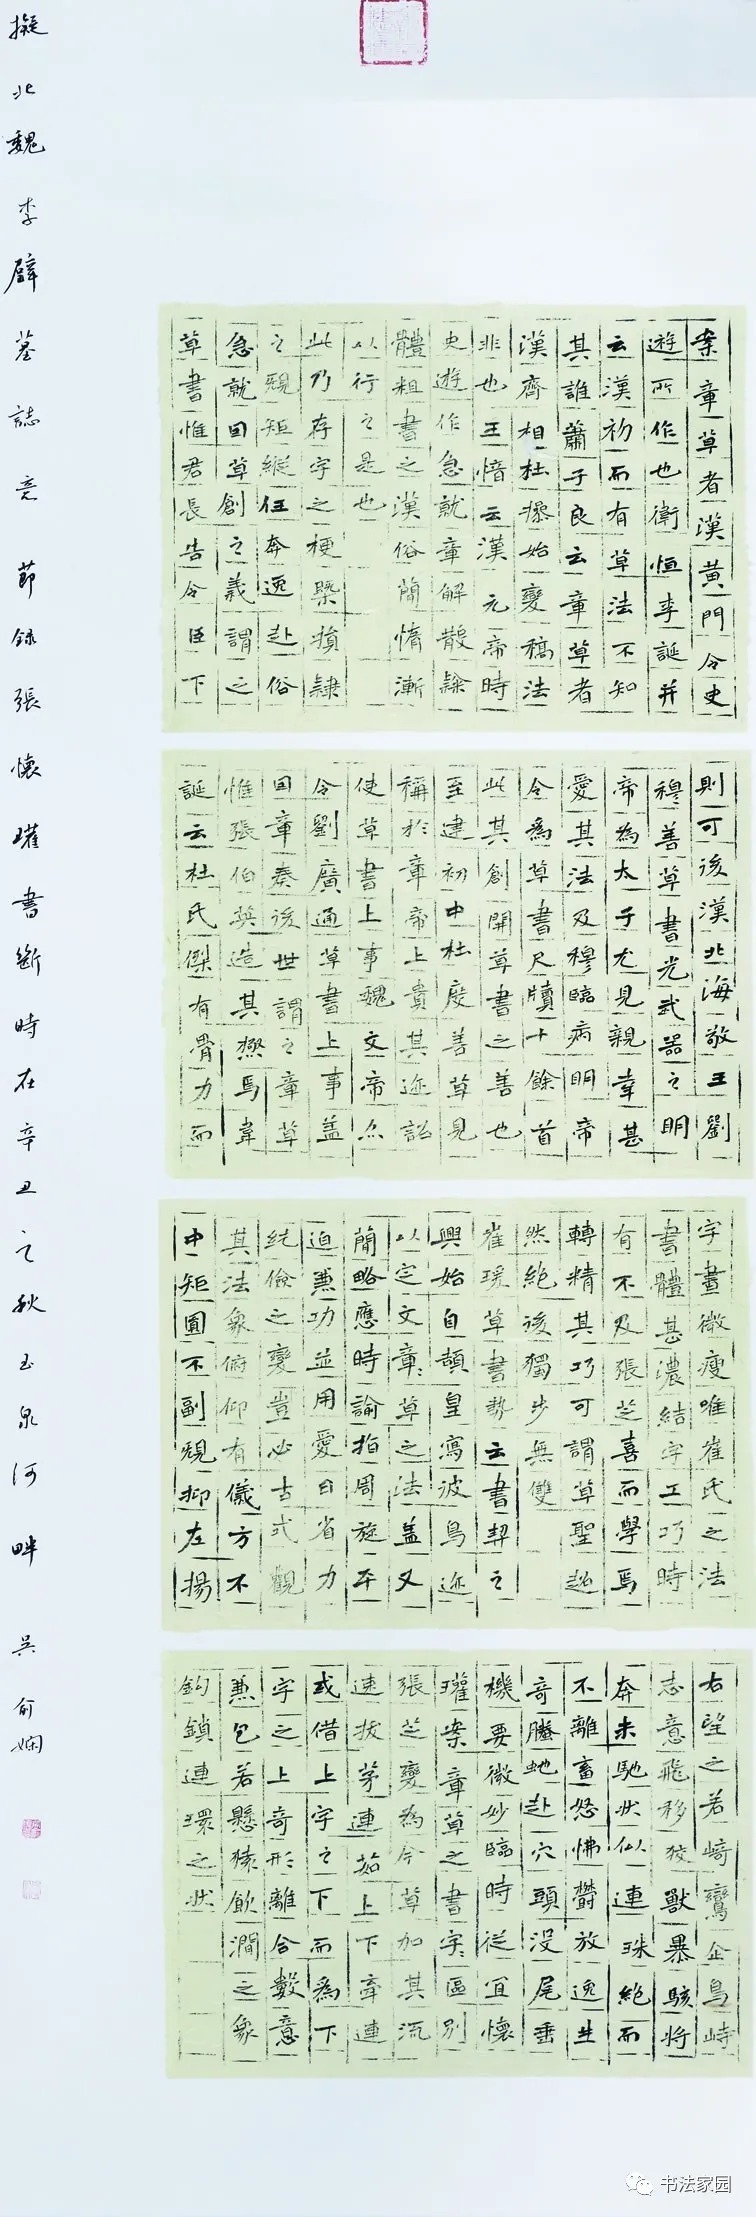 案章草者漢黃門令史
遊所作也衛恒李誕并
云漢初而有草法不知
其誰蕭子良云章草者
漢齊相杜操始變稿法
非也王愔云漢元帝時
史遊作急就章解散隸
體粗書之漢俗簡惰漸
以行之是也
此乃存字之梗槩損隸
之規矩縱任奔逸赴俗
急就因草創之義謂之
草書惟君長告令臣下
則可後漢北海敬王劉
穆善草書光武器之明
帝為太子尤見親幸甚
愛其法及穆臨病明帝
令為草書尺牘十餘首
此其創開草書之善也
至建初中杜度善草見
稱於章帝上貴其迹詔
使草書上事魏文帝亦
令劉廣通草書上事蓋
因章奏後世謂之章草
惟張伯英造其極焉韋
誕云杜氏傑有骨力而
字畫微瘦唯崔氏之法
書體甚濃結字工巧時
有不及張芝喜而學焉
轉精其巧可謂草聖超
然絕後獨步無雙
崔瑗草書勢云書契之
興始自頡皇寫彼鳥迹
以定文章章草之法蓋又
簡略應時諭指周旋卒
迫兼功並用愛日省力
純儉之變豈必古式觀
其法象俯仰有儀方不
中矩圓不副規抑左揚
右望之若崎鸞企鳥峙
志意飛移狡獸暴駭將
奔未馳狀似連珠絕而
不離畜怒怫鬱放逸生
奇騰蛇赴穴頭沒尾垂
機要微妙臨時從宜懷
瓘案章草之書字字區別
張芝變為今草加其流
速拔茅連茹上下牽連
或借上字之下而為下
字之上奇形離合數意
兼包若懸猿飲澗之象
鉤鎖連環之狀
擬北魏李壁墓誌意節錄張懷瓘書斷時在辛丑之秋玉泉河畔吳俞嫻
书法家园